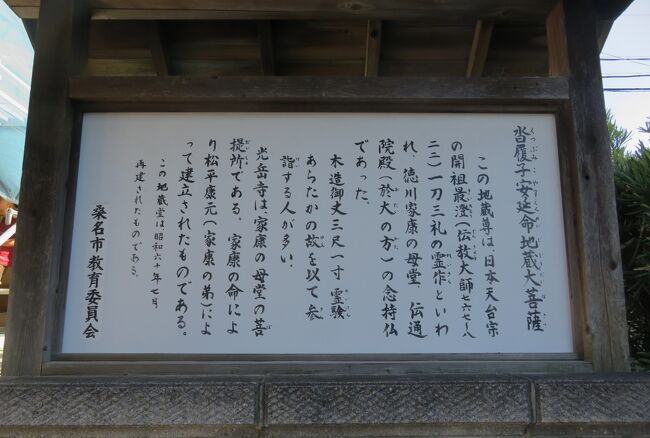 沓履子安延命地蔵大菩薩
この地蔵尊は、日本天台宗
の開祖最澄（伝教大師七六七～八
二二）一刀三礼の霊作といわ
れ、徳川家康の母堂、伝通
院殿（於大の方）の念持仏
であった。
木造御丈三尺一寸 霊験
あらたかの故を以て参
詣する人が多い。
光岳寺は家康の母堂の菩
提所である。家康の命によ
り松平康元（家康の弟）によ
って建立されたものである。
この地蔵堂は昭和六十年七月
再建されたものである。
桑名市教育委員会